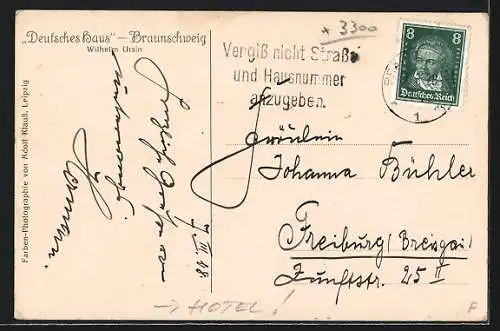 „Deutsches Haus“ – Braunschweig
Wilhelm Ursin
* 3300
Vergiß nicht Straße
und Hausnummer
anzugeben.
8 8
Deutsches Reich
1
Fräulein
Johanna Bühler
Freiburg (Breisgau)
Zunftstr. 25 II
Herzliche
Hermann.
7. III. 28.
Farben-Photographie von Adolf Klauß, Leipzig
→ HOTEL!
F